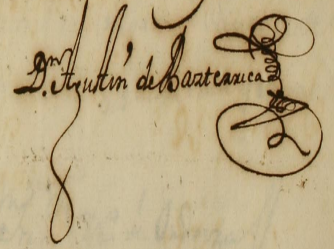 Dn. Agustin de Barterrica